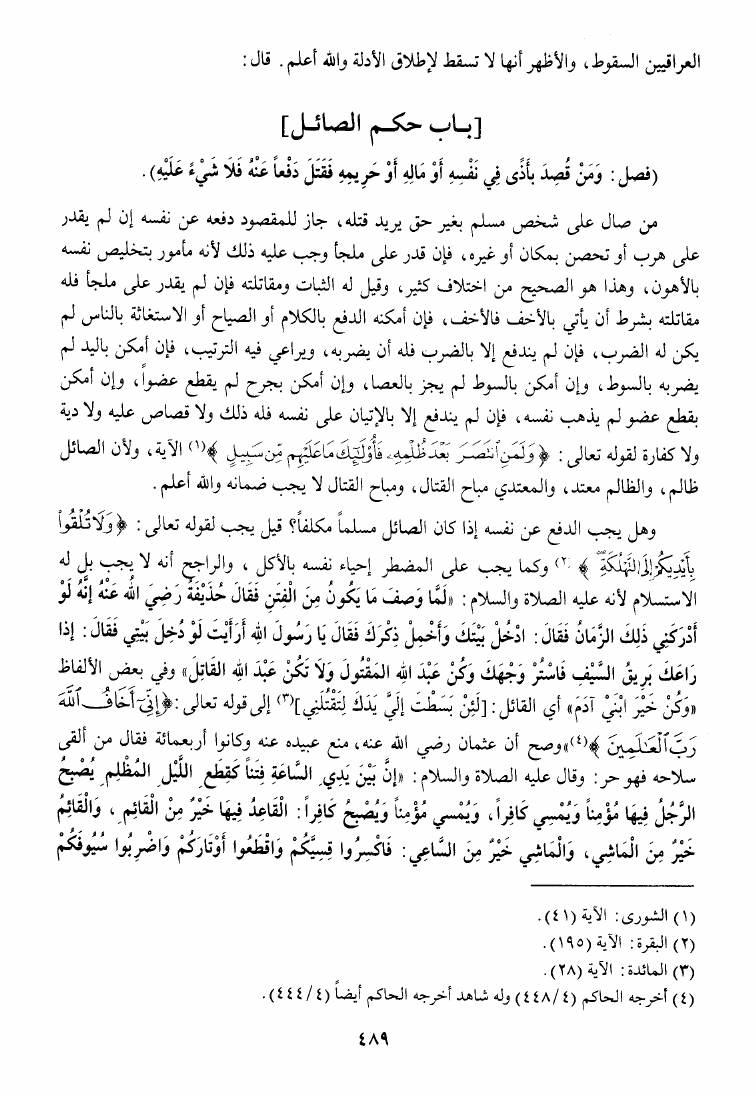 العراقيين السقوط، والأظهر أنها لا تسقط لإطلاق الأدلة والله أعلم. قال:
[باب حكم الصائل]
(فصل: وَمَنْ قُصِدَ بِأَذًى فِي نَفْسِهِ أَوْ مَالِهِ أَوْ حَرِيمِهِ فَقَتَلَ دَفْعاً عَنْهُ فَلَا شَيْءَ عَلَيْهِ).
من صال على شخص مسلم بغير حق يريد قتله، جاز للمقصود دفعه عن نفسه إن لم يقدر
على هرب أو تحصن بمكان أو غيره، فإن قدر على ملجأ وجب عليه ذلك لأنه مأمور بتخليص نفسه
بالأهون، وهذا هو الصحيح من اختلاف كثير، وقيل له الثبات ومقاتلته فإن لم يقدر على ملجأ فله
مقاتلته بشرط أن يأتي بالأخف فالأخف، فإن أمكنه الدفع بالكلام أو الصياح أو الاستغاثة بالناس لم
يكن له الضرب، فإن لم يندفع إلا بالضرب فله أن يضربه، ويراعي فيه الترتيب، فإن أمكن باليد لم
يضربه بالسوط، وإن أمكن بالسوط لم يجز بالعصا، وإن أمكن بجرح لم يقطع عضواً، وإن أمكن
بقطع عضو لم يذهب نفسه، فإن لم يندفع إلا بالإتيان على نفسه فله ذلك ولا قصاص عليه ولا دية
ولا كفارة لقوله تعالى: ﴿وَلَمَنِ ٱنتَصَرَ بَعْدَ ظُلْمِهِۦ فَأُوْلَٰٓئِكَ مَا عَلَيْهِم مِّن سَبِيلٍ﴾(١) الآية، ولأن الصائل
ظالم، والظالم معتد، والمعتدي مباح القتال، ومباح القتال لا يجب ضمانه والله أعلم.
وهل يجب الدفع عن نفسه إذا كان الصائل مسلماً مكلفاً؟ قيل يجب لقوله تعالى: ﴿وَلَا تُلْقُوا۟
بِأَيْدِيكُمْ إِلَى ٱلتَّهْلُكَةِ﴾(٢) وكما يجب على المضطر إحياء نفسه بالأكل، والراجح أنه لا يجب بل له
الاستسلام لأنه عليه الصلاة والسلام: «لَمَّا وَصَفَ مَا يَكُونُ مِنَ الْفِتَنِ فَقَالَ حُذَيْفَةُ رَضِيَ اللهُ عَنْهُ إِنَّهُ لَوْ
أَدْرَكَنِي ذلِكَ الزَّمَانُ فَقَالَ: ادْخُلْ بَيْتَكَ وَأَخْمِلْ ذِكْرَكَ فَقَالَ يَا رَسُولَ اللهِ أَرَأَيْتَ لَوْ دُخِلَ بَيْتِي فَقَالَ: إذا
رَاعَكَ بَرِيقُ السَّيْفِ فَاسْتُرْ وَجْهَكَ وَكُنْ عَبْدَ اللهِ المَقْتُولَ وَلَا تَكُنْ عَبْدَ اللهِ القَاتِلَ» وفي بعض الألفاظ
«وَكُنْ خَيْرَ ابْنَيْ آدَمَ» أي القائل: [لَئِنْ بَسَطْتَ إِلَيَّ يَدَكَ لِتَقْتُلَنِي](٣) إلى قوله تعالى: ﴿إِنِّىٓ أَخَافُ ٱللَّهَ
رَبَّ ٱلْعَٰلَمِينَ﴾(٤)» وصح أن عثمان رضي الله عنه، منع عبيده عنه وكانوا أربعمائة فقال من ألقى
سلاحه فهو حر: وقال عليه الصلاة والسلام: «إِنَّ بَيْنَ يَدَيِ السَّاعَةِ فِتَناً كَقِطَعِ اللَّيْلِ المُظْلِمِ يُصْبِحُ
الرَّجُلُ فِيهَا مُؤْمِناً وَيُمْسِي كَافِراً، وَيُمْسِي مُؤْمِناً وَيُصْبِحُ كَافِراً: القَاعِدُ فِيهَا خَيْرٌ مِنْ الْقَائِمِ، وَالْقَائِمُ
خَيْرٌ مِنَ الْمَاشِي، وَالْمَاشِي خَيْرٌ مِنَ السَّاعِي: فَاكْسِرُوا قِسِيَّكُمْ وَاقْطَعُوا أَوْتَارَكُمْ وَاضْرِبُوا سُيُوفَكُمْ
(١) الشورى: الآية (٤١).
(٢) البقرة: الآية (١٩٥).
(٣) المائدة: الآية (٢٨).
(٤) أخرجه الحاكم (٤/٤٤٨) وله شاهد أخرجه الحاكم أيضاً (٤/٤٤٤).
٤٨٩